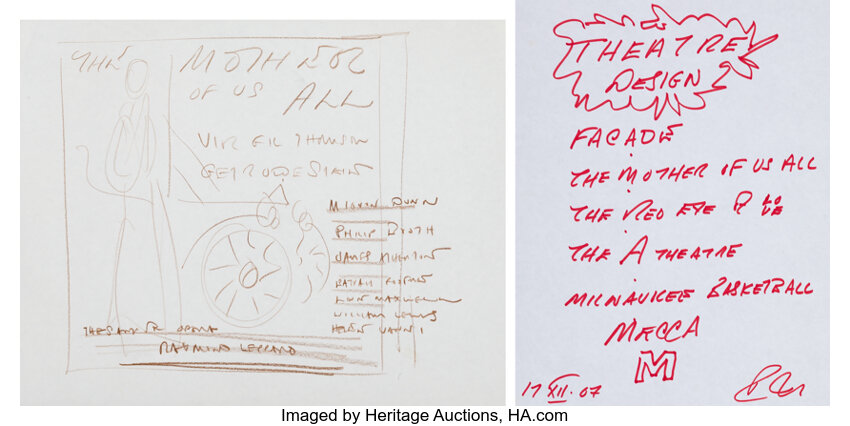 THE MOTHER
OF US ALL
VIRGIL THOMSON
GERTRUDE STEIN
MIGNON DUNN
PHILIP BOOTH
JAMES
BATYAH
LINN MAXWELL
WILLIAM LEWIS
HELEN VANNI
THE SANTA FE OPERA
RAYMOND LEPPARD
THEATRE
DESIGN
FACADE
THE MOTHER OF US ALL
THE RED EYE OF LOVE
THE A THEATRE
MILWAUKEE BASKETBALL
MECCA
M
17 XII. 07
Imaged by Heritage Auctions, HA.com